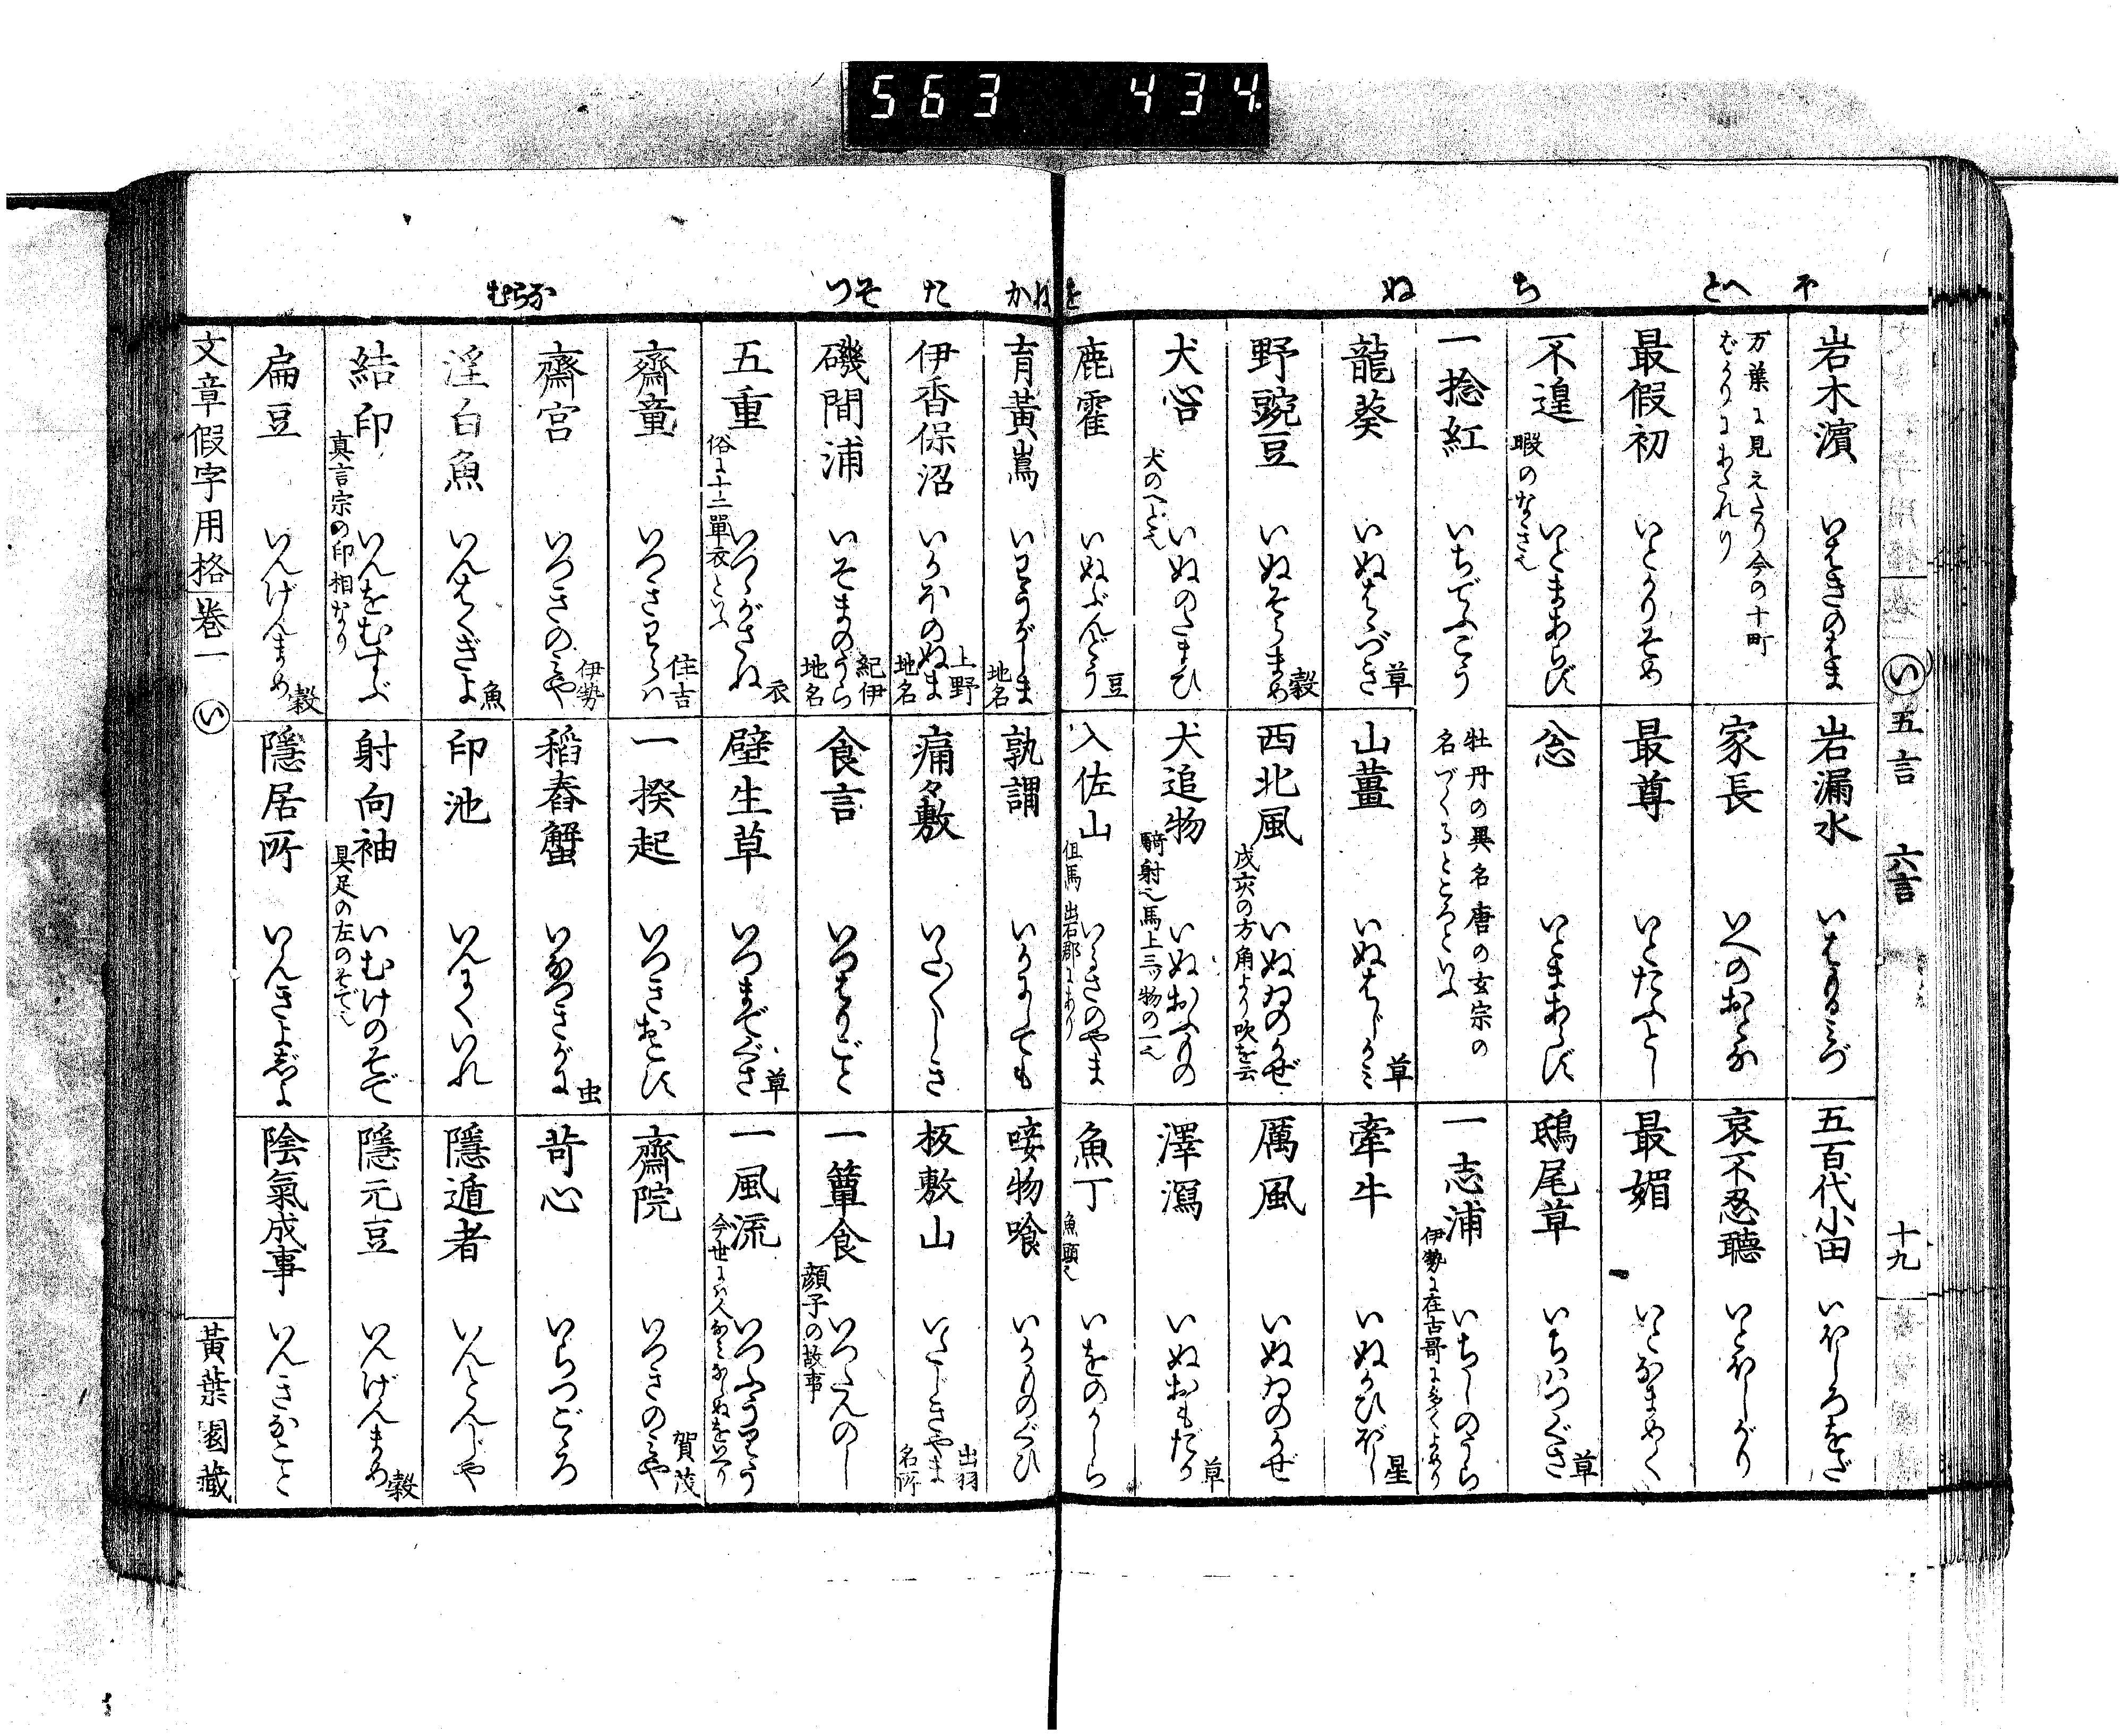 563 434
ほ
へ
と
ち
ぬ
を
わ
か
た
そ
つ
な
ら
む
い 五言 六言
十九
岩木濱 いはきのはま
岩漏水 いはもるみづ
五百代小田 いほしろをだ
万葉に見えたり今の十町
ばかりにあたれり
家長 いへのおさな
哀不忍聴 いとほしがり
最假初 いとかりそめ
最尊 いとたふとし
最媚 いとなまめく
不遑 いとまあらず
暇のなきさ也
忩 いとまあらず
鴟尾草 いちはつぐさ 草
一捻紅 いちでふこう
牡丹の異名唐の玄宗の
名づくるところといふ
一志浦 いちしのうら
伊勢に在古哥に多くよめり
龍葵 いぬほゝづき 草
山薑 いぬはじかみ 草
牽牛 いぬかひぼし 星
野豌豆 いぬそらまめ 穀
西北風 いぬゐのかぜ
戌亥の方角より吹を云
厲風 いぬゐのかぜ
犬咎 いぬのたまひ
犬のへど也
犬追物 いぬおふもの
騎射也馬上三ツ物の一也
澤瀉 いぬおもだか 草
鹿藿 いぬぶんどう 豆
入佐山 いるさのやま
但馬出石郡にあり
魚丁 いをのかしら
魚頭也
育黄嶌 いわうがしま 地名
孰謂 いかにしても
咹物喰 いかものぐひ
伊香保沼 いかほのぬま 上野 地名
痛々敷 いた〱しき
板敷山 いたじきやま 出羽 名所
磯間浦 いそまのうら 紀伊 地名
食言 いつはりごと
一簞食 いつたんのし
顔子の故事
五重 いつゝがさね 衣
俗に十二單衣といふ
壁生草 いつまでぐさ 草
一風流 いつふうりう
齋童 いつきわらハ 住吉
一揆起 いつきおこす
齋院 いつきのみや 賀茂
齋宮 いつきのみや 伊勢
稻舂蟹 いなつきがに 虫
苛心 いらつごゝろ
淫白魚 いんはくぎよ 魚
印池 いんにくいれ
隱遁者 いんとんじや
結印 いんをむすぶ
真言宗の印相なり
射向袖 いむけのそで
具足の左のそで也
隱元豆 いんげんまめ 穀
扁豆 いんげんまめ 穀
隱居所 いんきよじよ
陰氣成事 いんきなこと
文章假字用格 巻一 い
黄葉園藏